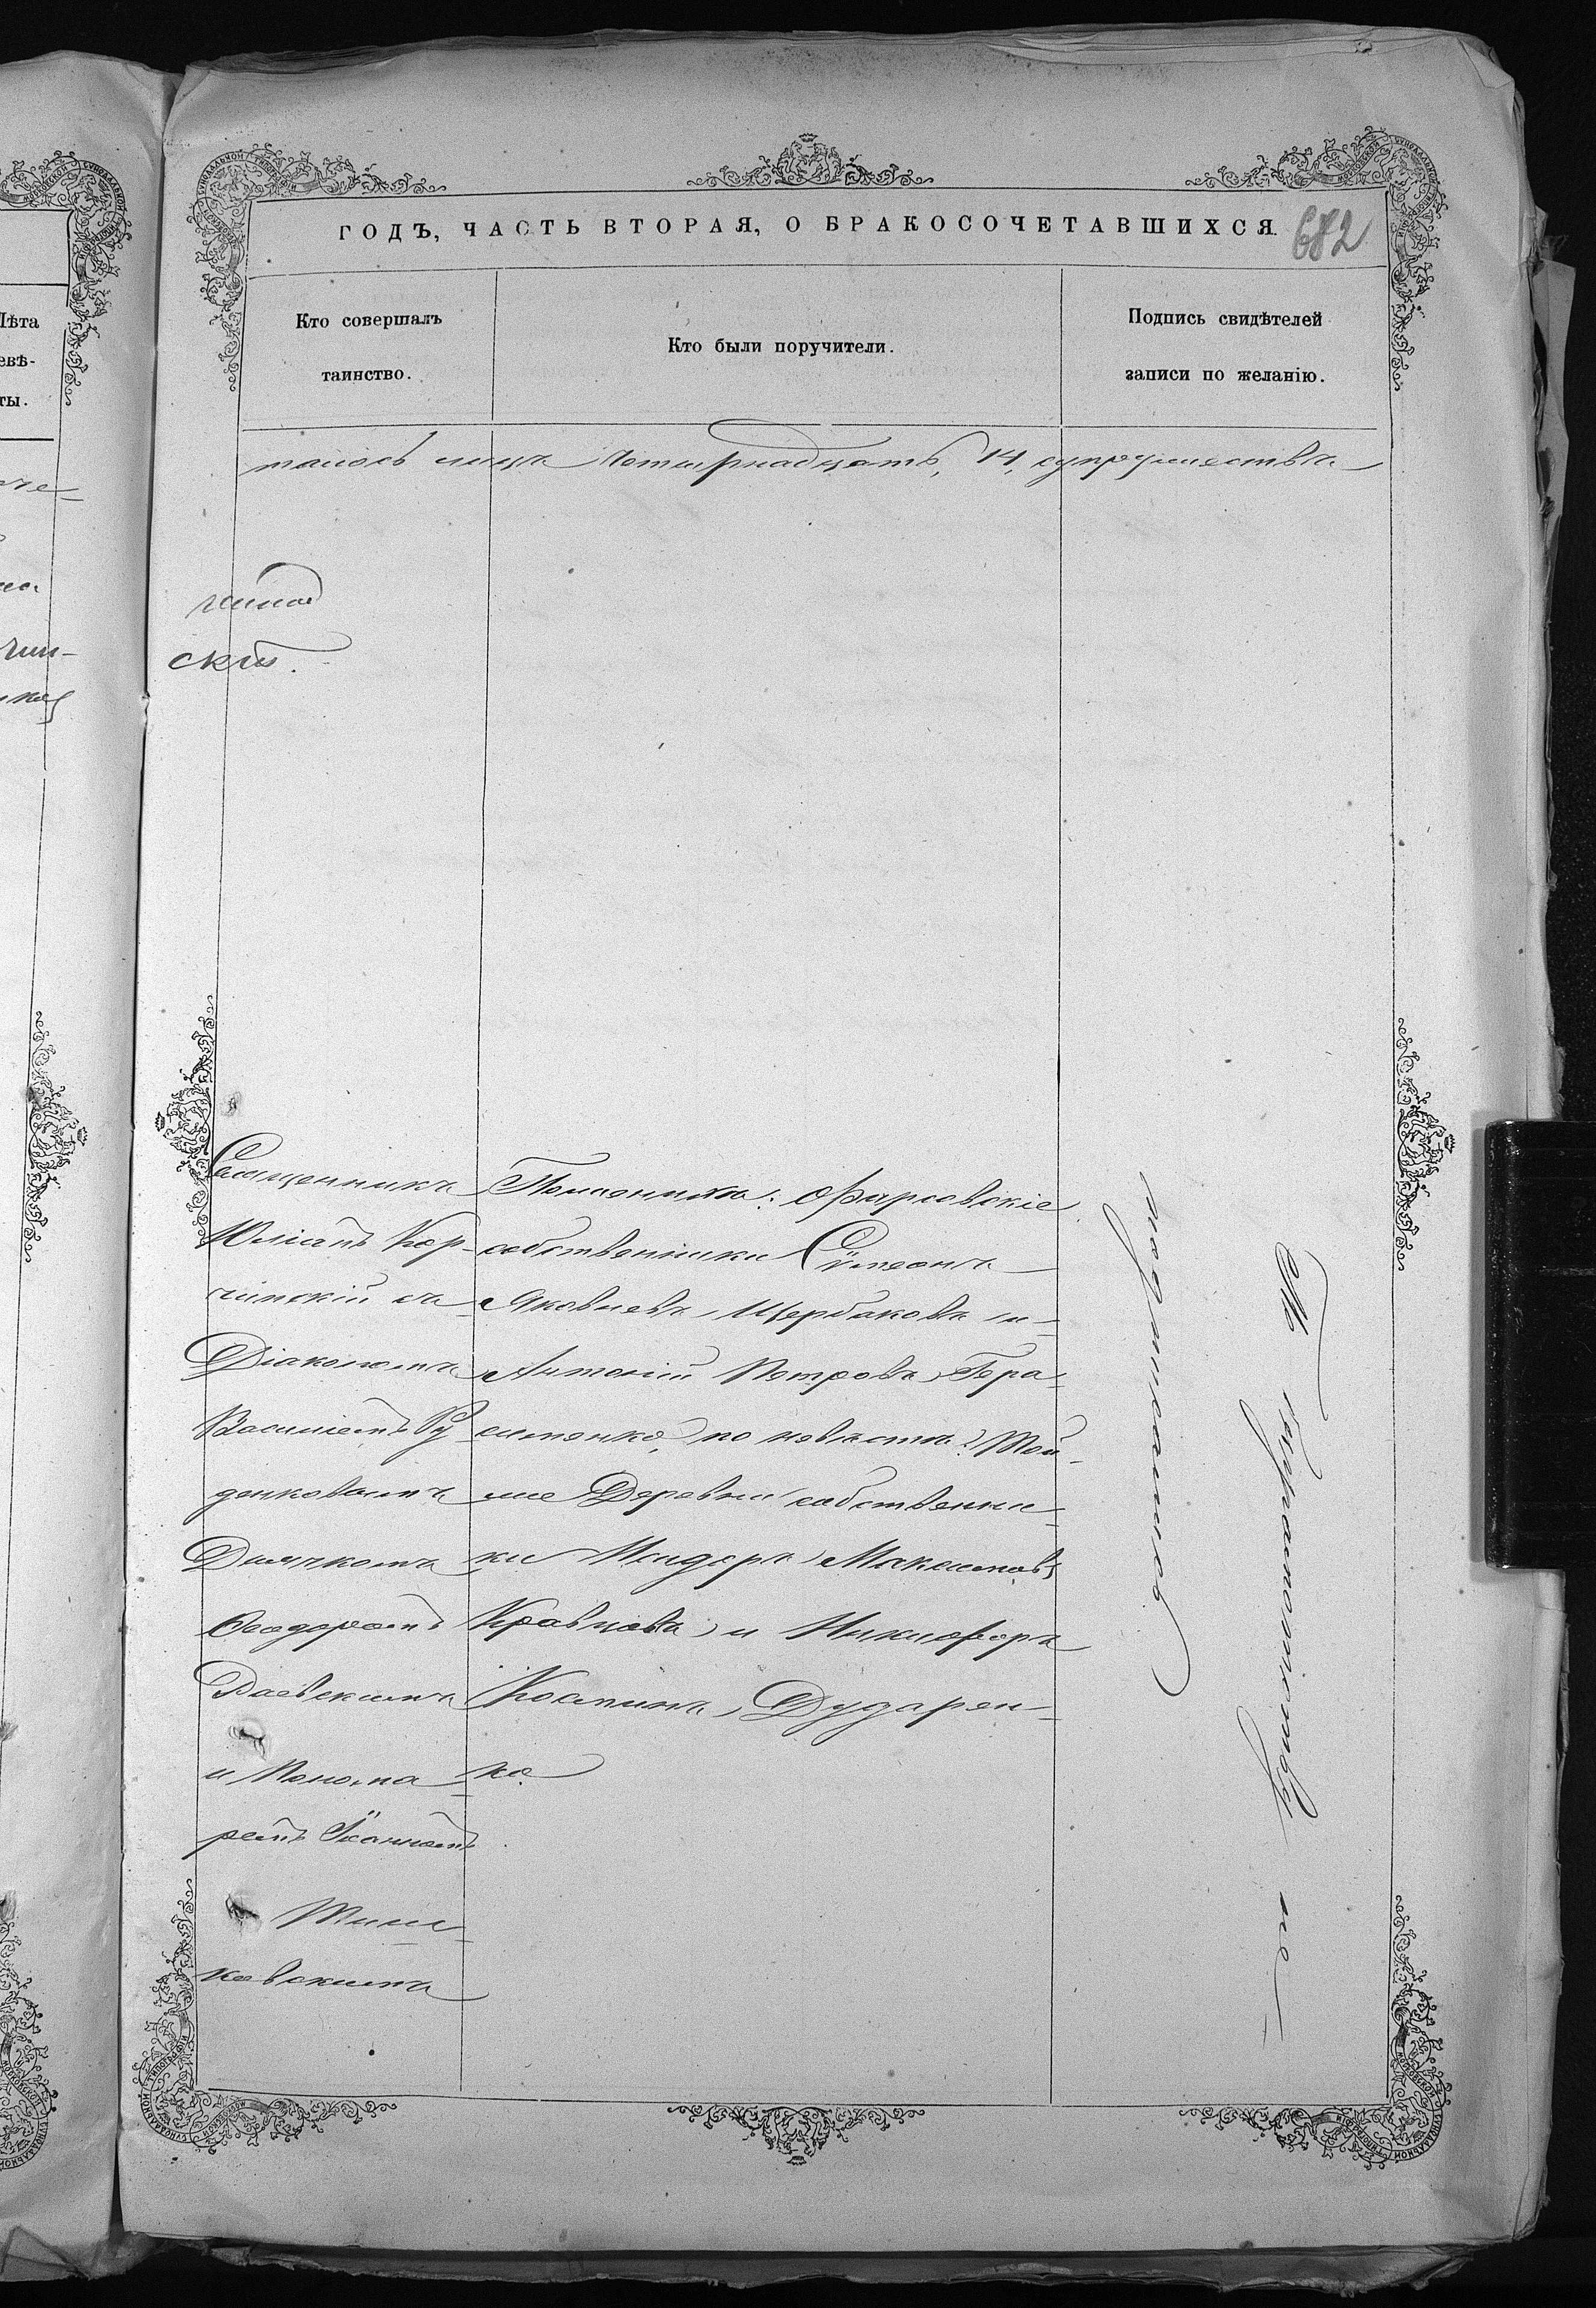 ГОДЪ, ЧАСТЬ ВТОРАЯ, О БРАКОСОЧЕТАВШИХСЯ. 682
Кто совершалъ
таинство.
Кто были поручители.
Подпись свидѣтелей
записи по желанію.
талось лицъ Четырнадцать, 14, супружествъ
скій.
Священникъ
Юліанъ Кор-
чинскій съ
Діакономъ
Василіемъ Ру
денковымъ
Дьячкомъ
Ѳеодоромъ
Раевскимъ
и Понома-
ремъ Іоанномъ
Тиш-
ковскимъ
По женихѣ: Фирсовскіе
собственники Сѵмеонъ
Яковлевъ Щербаковъ и
Антоній Петровъ Гера-
сименко, по невѣстѣ: Той-
же Деревни собственни-
ки Исидоръ Максимовъ
Кравцовъ и Никифоръ
Косминъ Дударен-
ко